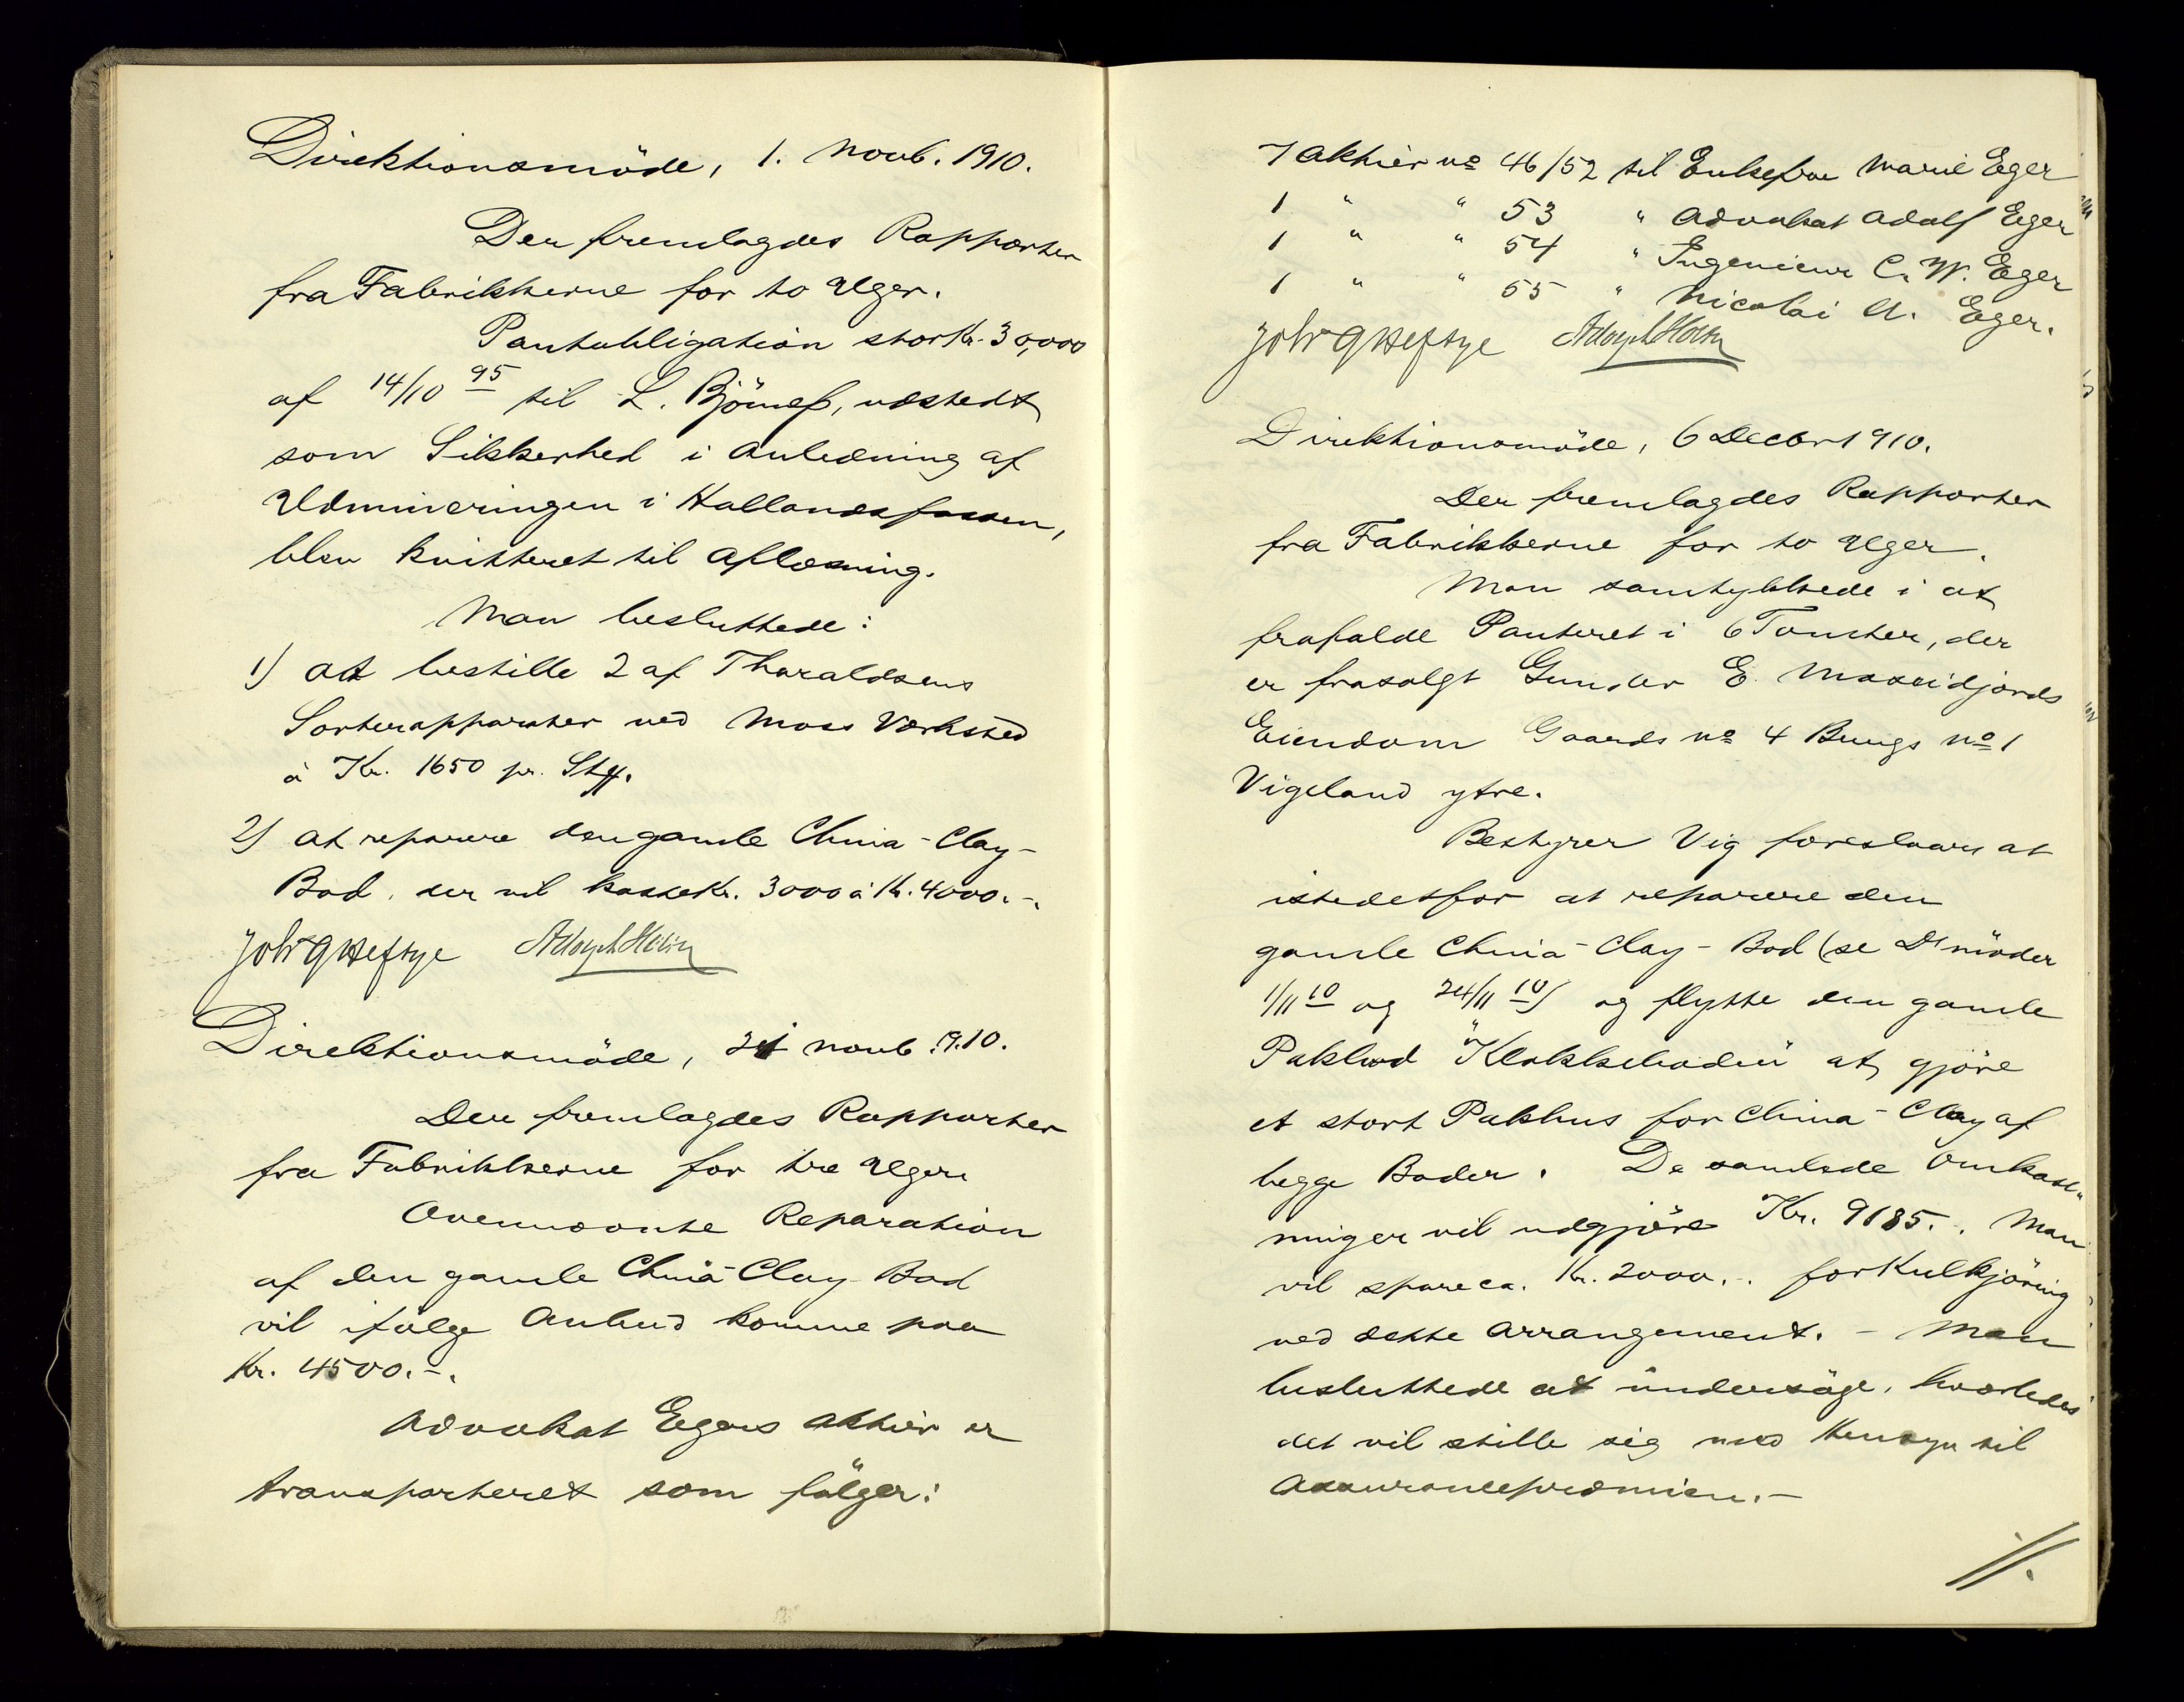 Direktionsmöde, 1. Novb. 1910.
Der fremlagdes Rapporter
fra Fabrikkerne for to Uger.
Pantobligation stor Kr. 30,000
af 14/10 95 til L. Björneß, udstedt
som Sikkerhed i Anledning af
Udmineringen i Hallandsfossen,
blev kvitteret til Aflæsning.
Man besluttede:
1) at bestille 2 af Tharaldsens
Sorterapparater ved Moss Værksted
à Kr. 1650 pr. Stk.
2) at reparere den gamle China-Clay-
Bod, der vil koste Kr. 3000 à Kr. 4000.-.
Joh G Heftye Adolph Holm
Direktionsmöde, 24 Novb. 1910.
Der fremlagdes Rapporter
fra Fabrikkerne for tre Uger.
Ovennævnte Reparation
af den gamle China-Clay-Bod
vil ifölge Anbud komme paa
Kr. 4500.-.
Advokat Egers Aktier er
transporteret som fölger:
7 Aktier no 46/52 til Enkefru Marie Eger
1 " " 53 " Advokat Adolf Eger
1 " " 54 " Ingeniør C. W. Eger
1 " " 55 " Nicolai A. Eger.
Joh G Heftye Adolph Holm
Direktionsmöde, 6 Decbr 1910.
Der fremlagdes Rapporter
fra Fabrikkerne for to Uger.
Man samtykkede i at
frafalde Panteret i 6 Tomter, der
er frasolgt Gunder E. Moseidjords
Eiendom Gaards no 4 Brugs no 1
Vigeland ytre.
Bestyrer Vig foreslaar at
istedetfor at reparere den
gamle China-Clay-Bod (se Dmöder
1/11 10 og 24/11 10) og flytte den gamle
Pakbod "Klokkeboden" at gjöre
et stort Pakhus for China-Clay af
begge Boder. De samlede Omkost-
ninger vil udgjöre Kr. 9185.-. Man
vil spare ca. Kr. 2000.-. for Kulkjöring
ved dette Arrangement. - Man
besluttede at undersöge, hvorledes
det vil stille sig med Hensyn til
Assurancepræmien.-
//.